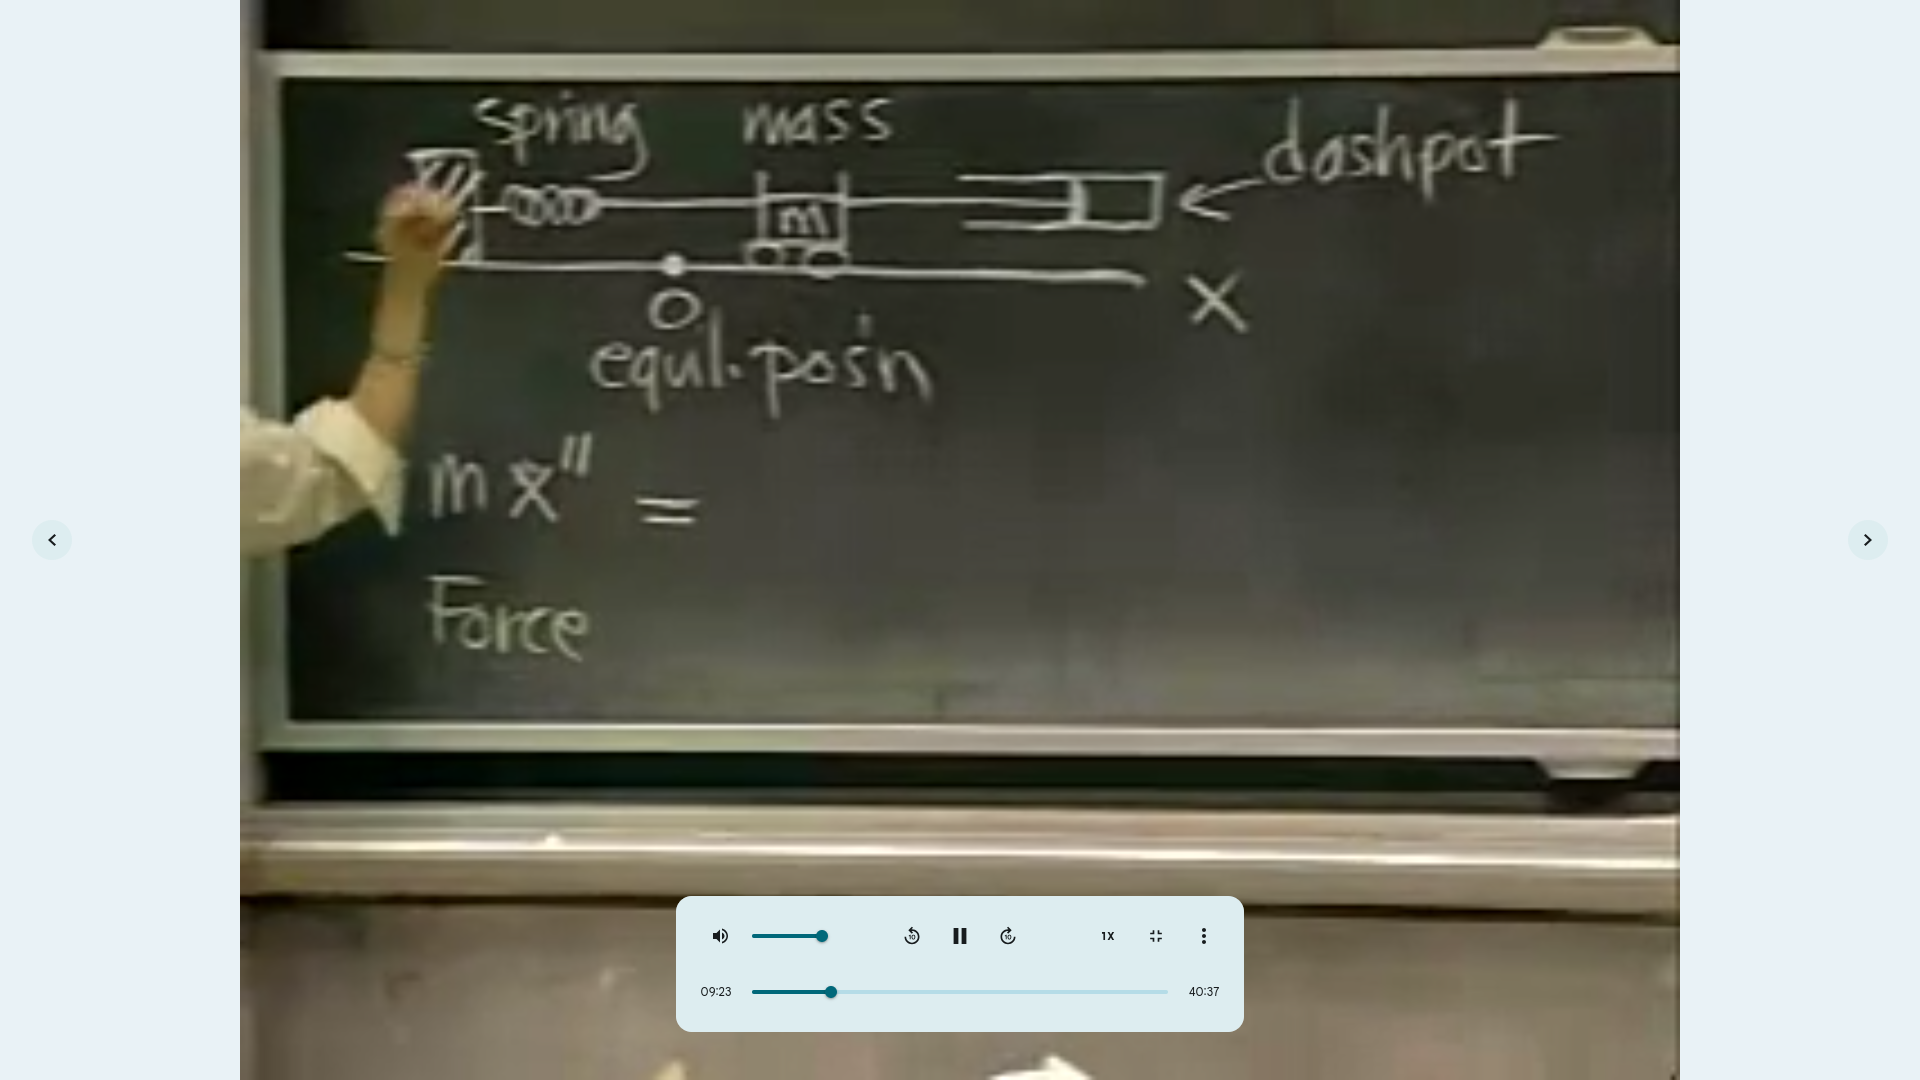 spring mass dashpot
m
0 x
equl. pos'n
m x" =
Force
10 10 1X
09:23 40:37